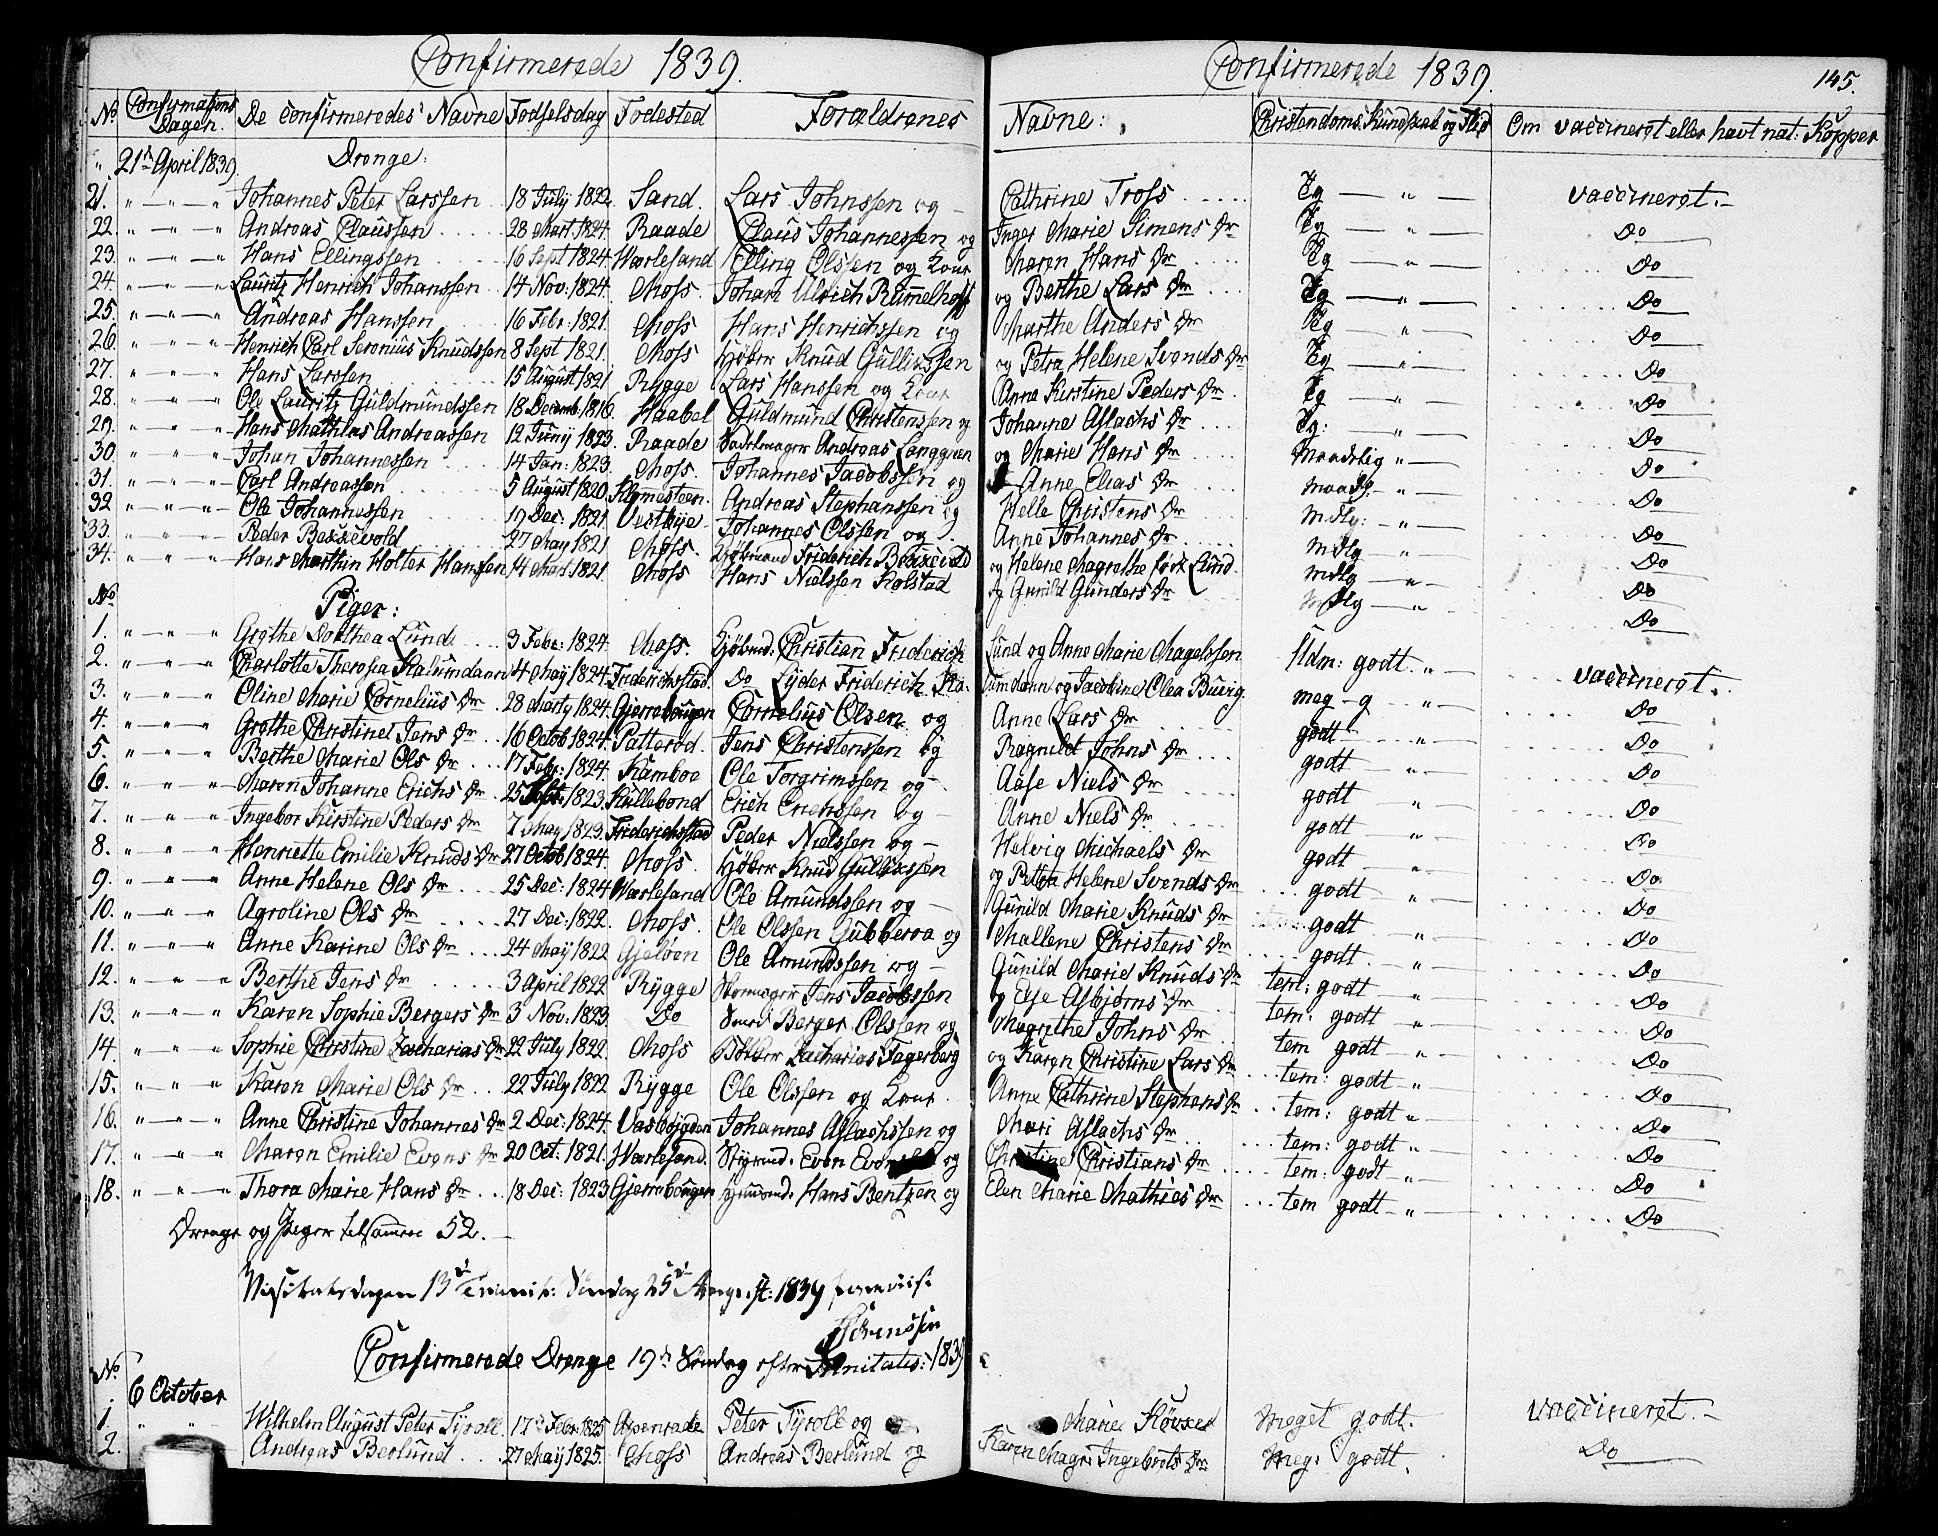 Confirmerede 1839.
Confirmerede 1839. 145.
No Confirmations Dagen. De confirmeredes Navne Fødselsdag Fødested Forældrenes Navne: Christendoms Kundskab og Flid Om vaccineret eller havt nat: Kopper
" 21de April 1839. Drenge:
21. " — " — " Johannes Peter Larssen 18 July 1822. Sand. Lars Johnssen og — Cathrine Tross Tg — " — vaccineret. —
22. " — " — " Andreas Claussen 28 Mart 1824. Raade Claus Johannessen og Inger Marie Simens Dr Tg — " — Do
23. " — " — " Hans Ellingssen 16 Sept 1824. Værlesand Elling Olssen og Kone Maren Hans Dr Tg — " — Do
24. " — " — " Lauritz Henrich Johanssen 14 Nov: 1824. Moss. Johan Ulrich Rummelhoff og Berthe Lars Dr Tg — " — Do
25. " — " — " Andreas Hanssen 16 Febr: 1821. Moss Hans Henrichssen og Marthe Anders Dr Tg — " — Do
26. " — " — " Henrich Carl Severinus Knudssen 8 Sept 1821. Moss Knud Gullixssen og Petra Helene Svends Dr Tg — " — Do
27. " — " — " Hans Larssen 15 August 1821 Rygge Lars Hanssen og Kone Anne Kirstine Peders Dr Tg — " — Do
28. " — " — " Ole Lauritz Guldmundssen 18 Decemb. 1816. Haabel Guldmund Christenssen og Johanne Aslachs Dr Tg: — " — Do
29. " — " — " Hans Mathias Andreassen 12 Juny 1823. Raade Sadelmager Andreas Langgven og Marie Hans Dr Maadelig " — Do
30. " — " — " Johan Johannessen 14 Jan: 1823. Moss. Johannes Jacobssen og Anne Elias Dr Maadlg: — " — Do
31. " — " — " Carl Andreassen 5 August 1820. Andreas Stephanssen og Helle Christens Dr Mdlg: — " — Do
32 " — " — " Ole Johannessen 19 Dec: 1821. Vestbye Johannes Olssen og Anne Johannes Dr Mdlg — " — Do
33. " — " — " Peder Bexxevold 27 May 1821 Moss. Friderich Bexxevold og Helene Magrethe født Lund. Mdlg — " — Do
34. " — " — " Hans Marthin Holter Hanssen 14 Mart 1821. Moss Hans Nielssen Kolstad og Gunild Gunders Dr Mdlg — " — Do
No Piger:
1. " — " — " Grethe Dorthea Lund 3 Febr: 1824. Moss. Kjøbmd. Christian Friderich Lund og Anne Marie Magelssen Udm: godt. " — vaccineret.
2. " — " — " Charlotte Theresia Kalumdann 4 May 1824. Friderichstad. Do Lyder Friderich Ka- lumdann og Jacobine Olea Buvig meg — g " — Do
3. " — " — " Oline Marie Cornelius Dr 28 Marty 1824. Gjerrebougen Cornelius Olsen og Anne Lars Dr godt " — Do
4. " — " — " Grethe Christine Jens Dr 16 Octob 1824. Patterød. Jens Christenssen og Ragnild Johns Dr godt " — Do
5. " — " — " Berthe Marie Ols Dr 17 Febr: 1824. Kamboe Ole Torgrimssen og — Aase Niels Dr godt " — Do
6. " — " — " Maren Johanne Erichs Dr 25 Sept: 1823. Kullebond Erich Erichssen og — Anne Niels Dr godt " — Do
7. " — " — " Ingebor Kirstine Peders Dr 7 May 1823. Friderichstad Peder Nielssen og — Helvig Michaels Dr godt " — Do
8. " — " — " Henriette Emilie Knuds Dr 27 Octob 1824. Moss. Knud Gullixssen og Petra Helene Svends Dr godt " — Do
9. " — " — " Anne Helene Ols Dr 25 Dec: 1824 Værlesand Ole Amundssen og — Gunild Marie Knuds Dr godt " — Do
10. " — " — " Agroline Ols Dr 27 Dec: 1822. Moss. Ole Olssen Gubberoa og Mallene Christens Dr godt " — Do
11. " — " — " Anne Karine Ols Dr 24 May 1822 Gjeløen Ole Amundssen og — Gunild Marie Knuds Dr tem: godt " — Do
12. " — " — " Berthe Jens Dr 3 April 1822. Rygge Skomager Jens Jacobssen og Else Asbjørns Dr tem: godt " — Do
13. " — " — " Karen Sophie Bergers Dr 3 Nov: 1823. Do Smed Berger Olssen og Magrethe Johns Dr tem godt — " — Do
14. " — " — " Sophie Christine Zacharias Dr 22 July 1822. Moss Zacharias Fagerberg og Karen Christine Lars Dr tem: godt " — Do
15. " — " — " Karen Marie Ols Dr 22 July 1822 Rygge Ole Olssen og Kone Anne Cathrine Stephens Dr tem: godt " — Do
16. " — " — " Anne Christine Johannes Dr 2 Dec: 1824. Vasbøjgden Johannes Aslachssen og Mari Aslachs Dr tem: godt " — Do
17. " — " — " Maren Emilie Evens Dr 20 Oct: 1821. Værlesand. Even og Christine Christians Dr tem: godt — " — Do
18. " — " — " Thora Marie Hans Dr 18 Dec: 1823 Gjerrebougen Hans Bentzen og Elen Marie Mathies Dr tem godt — " — Do
Drenge og Piger tilsammen 52. —
Visitatsdagen 13de Trinit: Søndag 25de August: 1839
Sørenssen
Confirmerede Drenge 19de Søndag efter Trinitatis: 1839
No
6 October
1. " " Wilhelm August Peter Tyroll 17de Febr 1825 Apenrade Peter Tyroll og Marie Køvser Meget godt. vaccineret. —
2. Andreas Berlund 27 May 1825. Moss Andreas Berlund og Karen Magr: Ingebrets Dr Meg: godt. Do